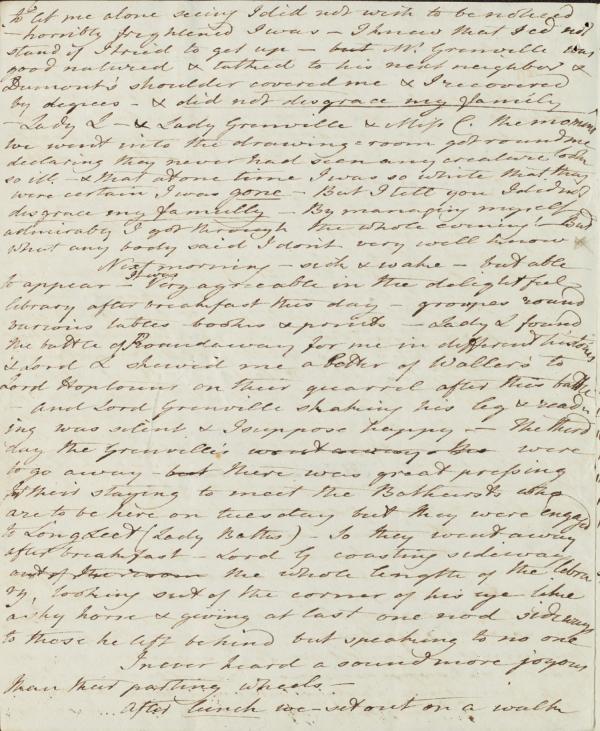 to let me alone seeing I did not wish to be noticed
– horribly frightened I was – I knew that I cd not
stand if I tried to get up – but Mr. Grenville was
good natured & talked to his next neighbor &
Dumont's shoulder covered me & I recovered
by degrees – & did not disgrace my family
– Lady L – & Lady Grenville & Miss C. the moment
we went into the drawing-room got round me
declaring they never had seen any creature look
so ill – & that at one time I was so white that they
were certain I was gone – But I tell you I did not
disgrace my family – By managing myself
admirably I got through the whole evening – But
what any body said I dont very well know
Next morning – sick & wake – but able
to appear – It was Very agreeable in the delightful
library after breakfast this day – groupes round
various tables books & prints – Lady L found
the battle of Roundaway for me in different histories
& Lord L shewed me a letter of Waller's to
Lord Hoptouns on their quarrel after this battle
– and Lord Grenville shaking his leg & read-
ing was silent & I suppose happy – The third
day the Grenvilles went away – the were
to go away – but there was great pressing
for their staying to meet the Bathursts who
are to be here on tuesday but they were engaged
to Longleet (Lady Baths) – So they went away
after breakfast – Lord G coasting sideway
out of the room the whole length of the libra
ry, looking out of the corner of his eye like
a shy horse & giving at last one nod sideways
to those he left behind but speaking to no one
I never heard a sound more joyous
than their parting wheels –
After lunch we set out on a walk